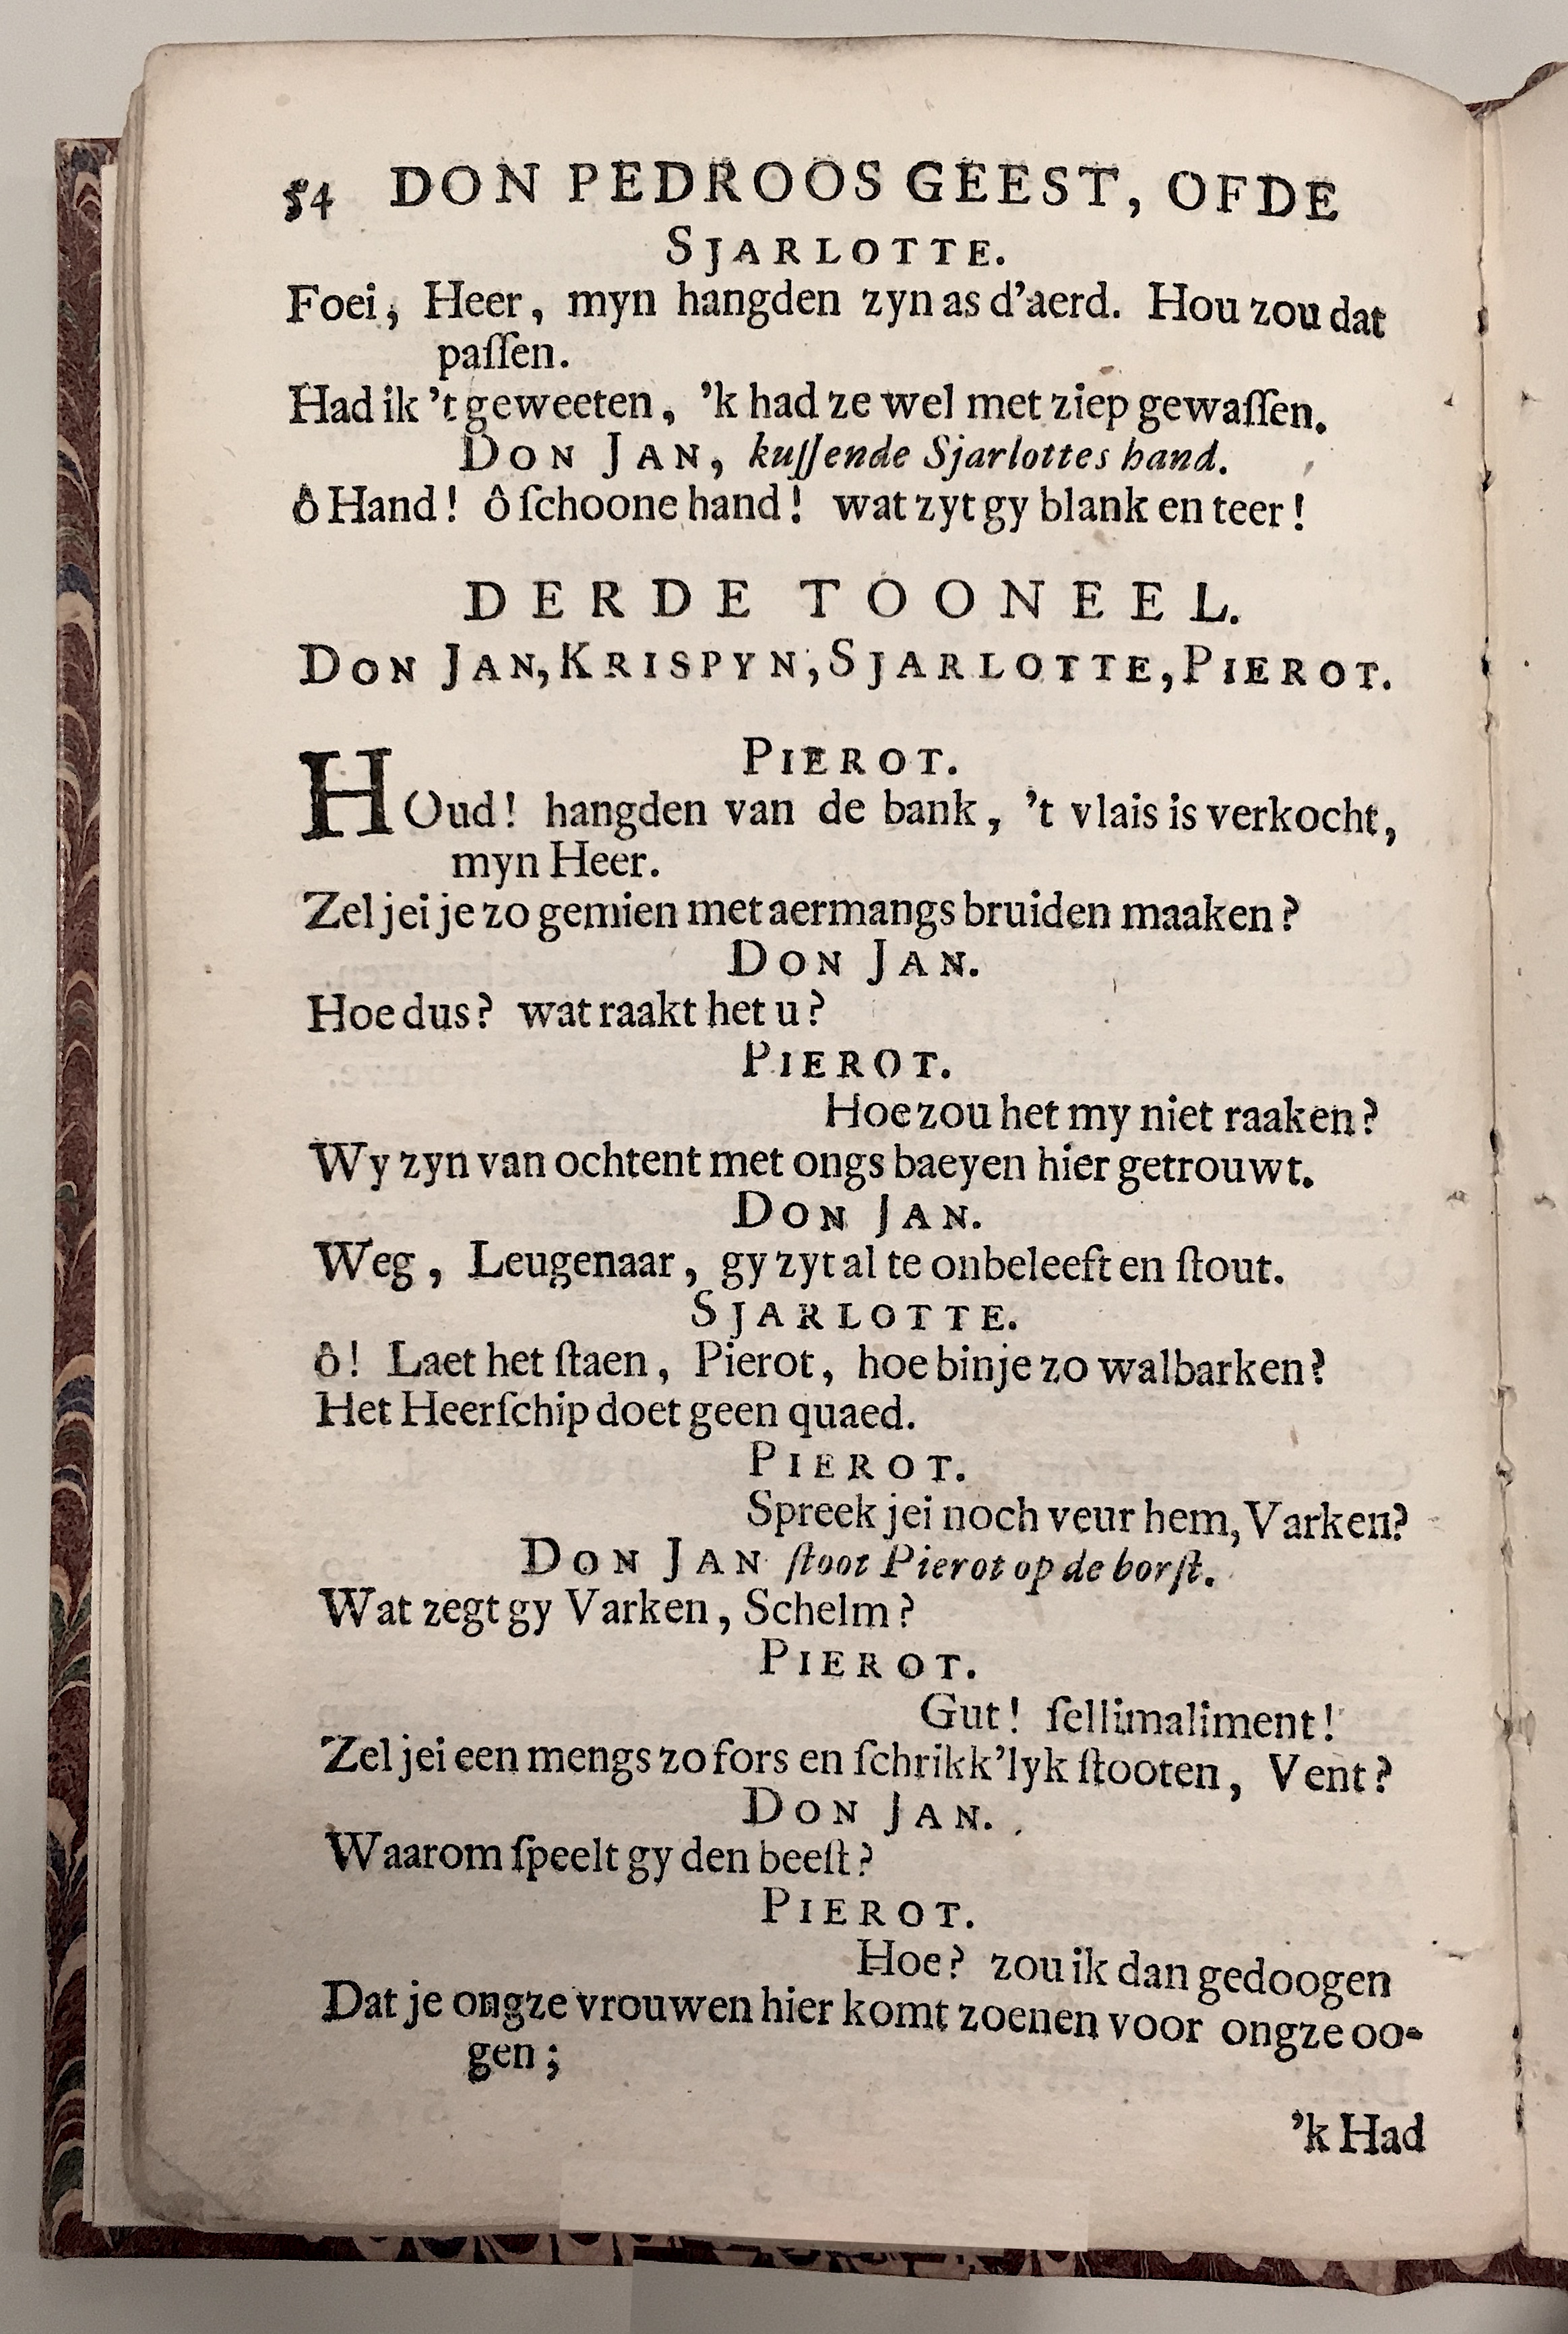 54 DON PEDROOS GEEST, OFDE
SJARLOTTE.
Foei, Heer, myn hangden zyn as d'aerd. Hou zou dat
paſſen.
Had ik 't geweeten, 'k had ze wel met ziep gewaſſen.
DON JAN, kuſſende Sjarlottes hand.
ô Hand! ô ſchoone hand! wat zyt gy blank en teer!
DERDE TOONEEL.
DON JAN, KRISPYN, SJARLOTTE, PIEROT.
PIEROT.
HOud! hangden van de bank, 't vlais is verkocht,
myn Heer.
Zel jei je zo gemien met aermangs bruiden maaken?
DON JAN.
Hoe dus? wat raakt het u?
PIEROT.
Hoe zou het my niet raaken?
Wy zyn van ochtent met ongs baeyen hier getrouwt.
DON JAN.
Weg, Leugenaar, gy zyt al te onbeleeft en ſtout.
SJARLOTTE.
ô! Laet het ſtaen, Pierot, hoe binje zo walbarken?
Het Heerſchip doet geen quaed.
PIEROT.
Spreek jei noch veur hem, Varken?
DON JAN ſtoot Pierot op de borſt.
Wat zegt gy Varken, Schelm?
PIEROT.
Gut! ſellimaliment!
Zel jei een mengs zo fors en ſchrikk'lyk ſtooten, Vent?
DON JAN.
Waarom ſpeelt gy den beeſt?
PIEROT.
Hoe? zou ik dan gedoogen
Dat je ongze vrouwen hier komt zoenen voor ongze oo-
gen;
'k Had